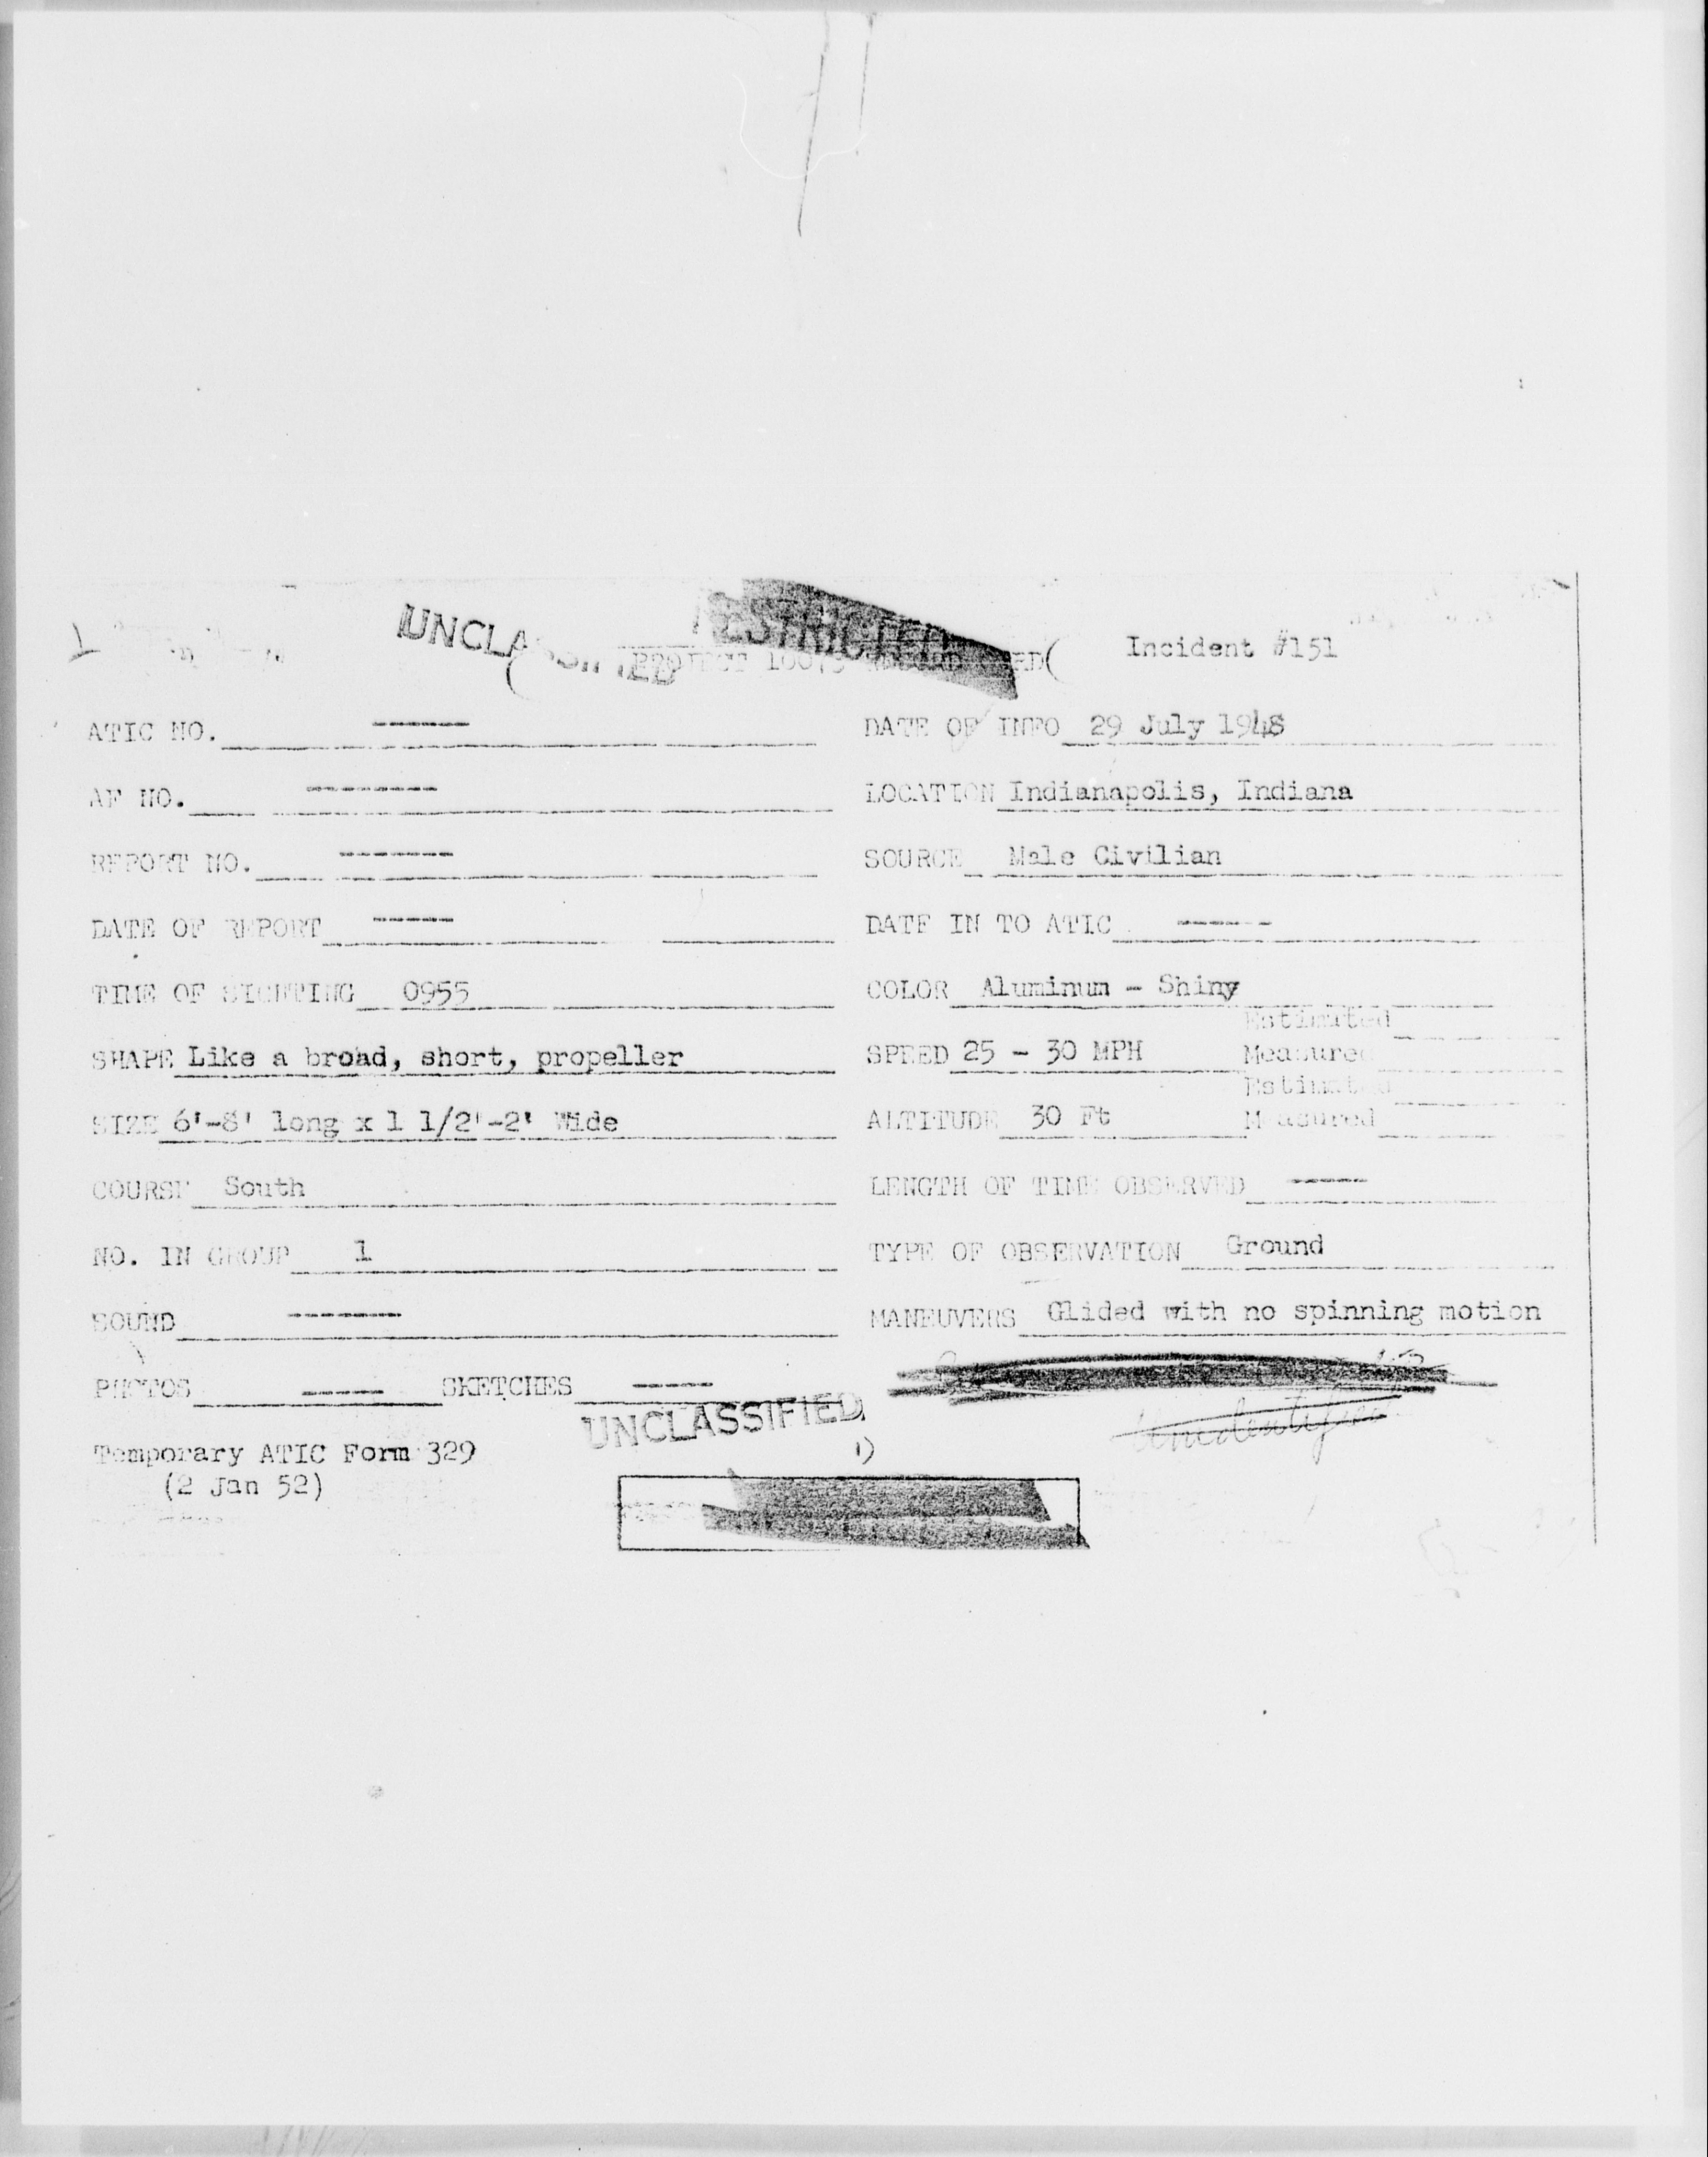 UNCLASSIFIED RESTRICTED
PROJECT 10073 RECORD CARD Incident #151
ATIC NO. ----- DATE OF INFO 29 July 1948
AF NO. ------- LOCATION Indianapolis, Indiana
REPORT NO. ------ SOURCE Male Civilian
DATE OF REPORT ----- DATE IN TO ATIC -----
TIME OF SIGHTING 0955 COLOR Aluminum - Shiny
Estimated
SHAPE Like a broad, short, propeller SPEED 25 - 30 MPH Measured
Estimated
SIZE 6'-8' long x 1 1/2'-2' Wide ALTITUDE 30 Ft Measured
COURSE South LENGTH OF TIME OBSERVED -----
NO. IN GROUP 1 TYPE OF OBSERVATION Ground
SOUND ------ MANEUVERS Glided with no spinning motion
PHOTOS ----- SKETCHES -----
UNCLASSIFIED
Unidentified
Temporary ATIC Form 329
(2 Jan 52)